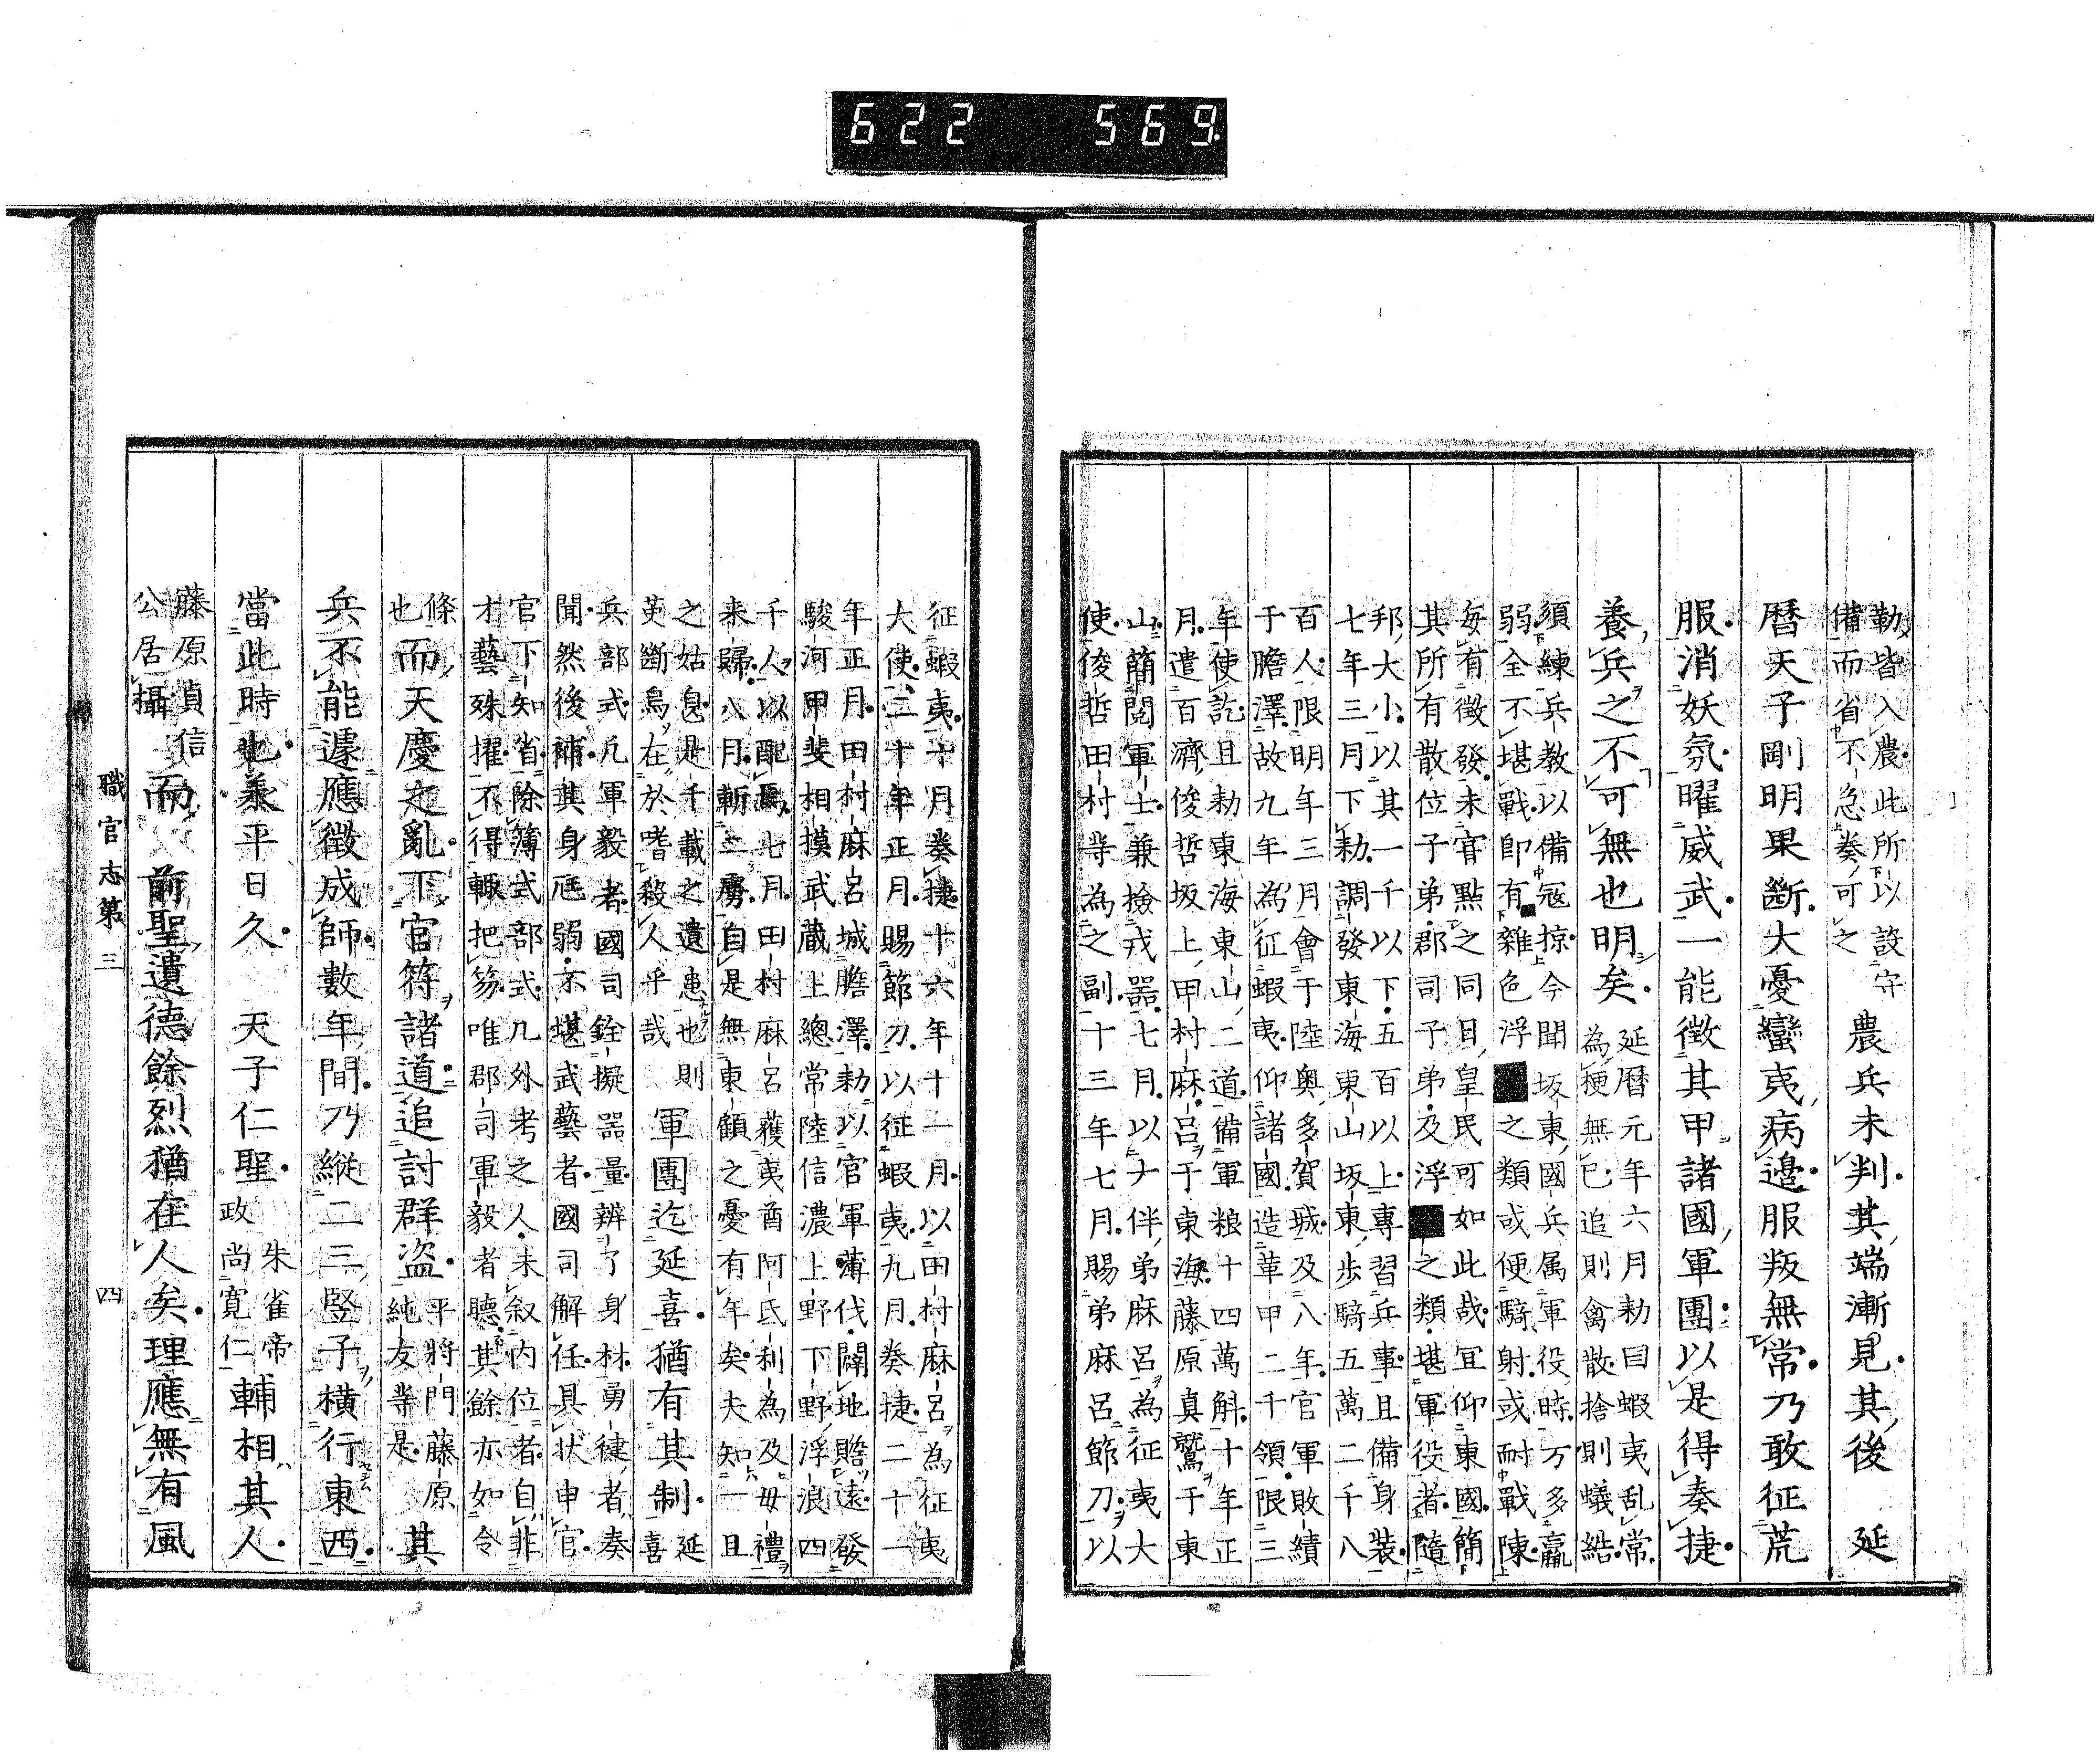 622 569
勒皆入農此所以設守
備而省不急奏可之
農兵未判其端漸見其後 延
暦天子剛明果斷大憂蠻夷病邊服叛無常乃敢征荒
服消妖氛曜威武一能徴其甲諸國軍團以是得奏捷
養兵之不可無也明矣
延暦元年六月勅曰蝦夷乱常
為梗無已追則禽散捨則蟻結
須練兵教以備冦掠今聞坂東國兵属軍役時万多羸
弱全不堪戰即有雜色浮之類或便騎射或耐戰陳
毎有徴發未甞點之同日皇民可如此哉宜仰東國簡
其所有散位子弟郡司子弟及浮之類堪軍役者隨
邦大小以其一千以下五百以上專習兵事且備身装
七年三月下勅調發東海東山坂東歩騎五萬二千八
百人限明年三月會于陸奥多賀城及八年官軍敗績
于膽澤故九年為征蝦夷仰諸國造革甲二千領限三
年使訖且勅東海東山二道備軍粮十四萬斛十年正
月遣百濟俊哲坂上甲村麻呂于東海藤原真鷲于東
山簡閲軍士兼撿戎器七月以大伴弟麻呂為征夷大
使俊哲田村等為之副十三年七月賜弟麻呂節刀以
征蝦夷十月奏捷十六年十一月以田村麻呂為征夷
大使二十年正月賜節刀以征蝦夷九月奏捷二十一
年正月田村麻呂城膽澤勅以官軍薄伐闢地贍遠發
駿河甲斐相摸武蔵上總常陸信濃上野下野浮浪四
千人以配焉七月田村麻呂獲夷酋阿氐利為及毋禮
来歸八月斬二虜自是無東顧之憂有年矣夫知一旦
之姑息是千載之遺患也則
英斷烏在於嗜殺人乎哉
軍團迄延喜猶有其制
延
喜
兵部式凡軍毅者國司銓擬器量辨了身材勇健者奏
聞然後補其身尫弱不堪武藝者國司解任具状申官
官下知省除簿式部式凡外考之人未叙内位者自非
才藝殊擢不得輙把笏唯郡司軍毅者聽其餘亦如令
條
也
而天慶之亂下官符諸道追討群盗
平將門藤原
純友等是
其
兵不能遽應徴成師數年間乃縦二三竪子横行東西
當此時也羕平日久 天子仁聖
朱雀帝
政尚寛仁
輔相其人
藤原貞信
公居攝
而 前聖遺德餘烈猶在人矣理應無有風
職官志第三 四